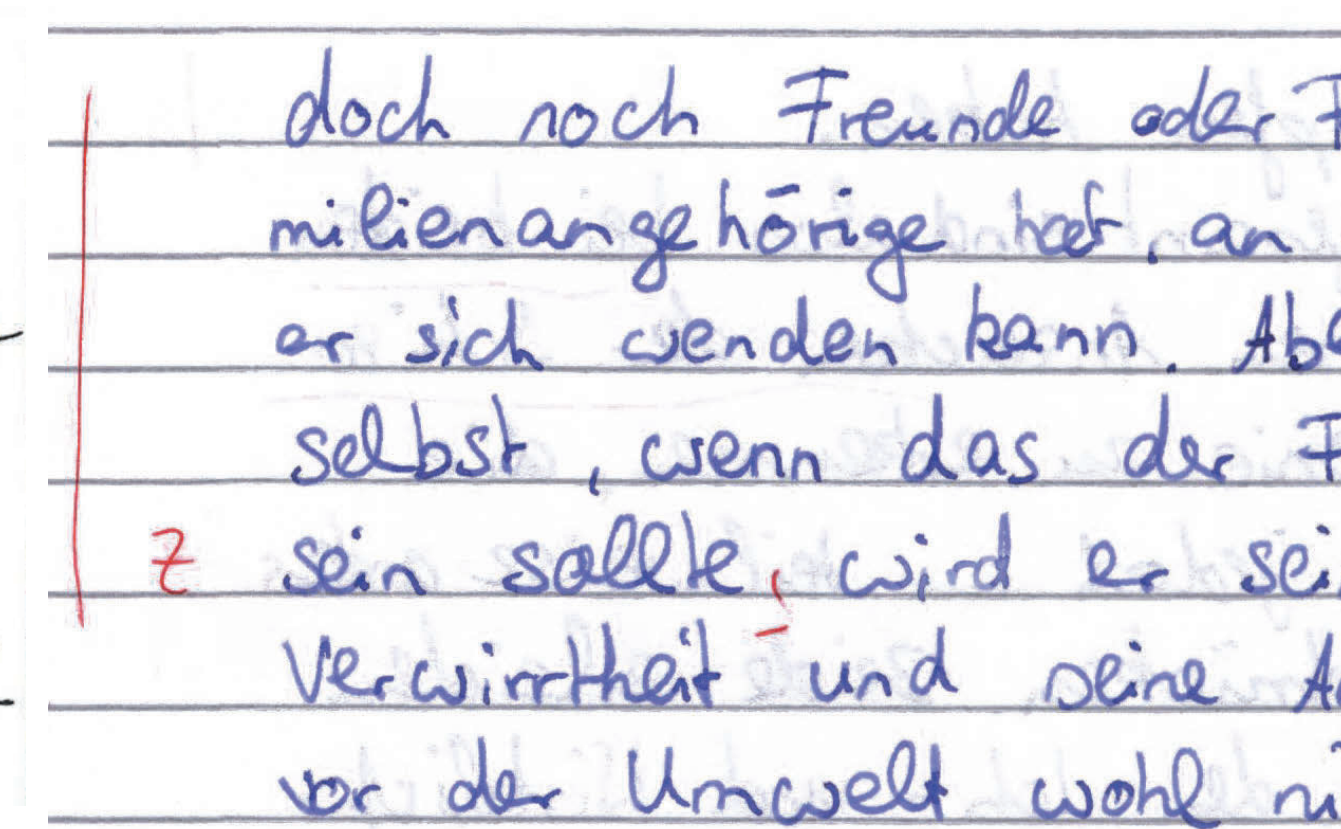 doch noch Freunde oder F
milienangehörige hat, an
er sich wenden kann. Abe
selbst, wenn das der F
z sein sollte, wird er sei
Verwirrtheit und seine A
vor der Umwelt wohl ni